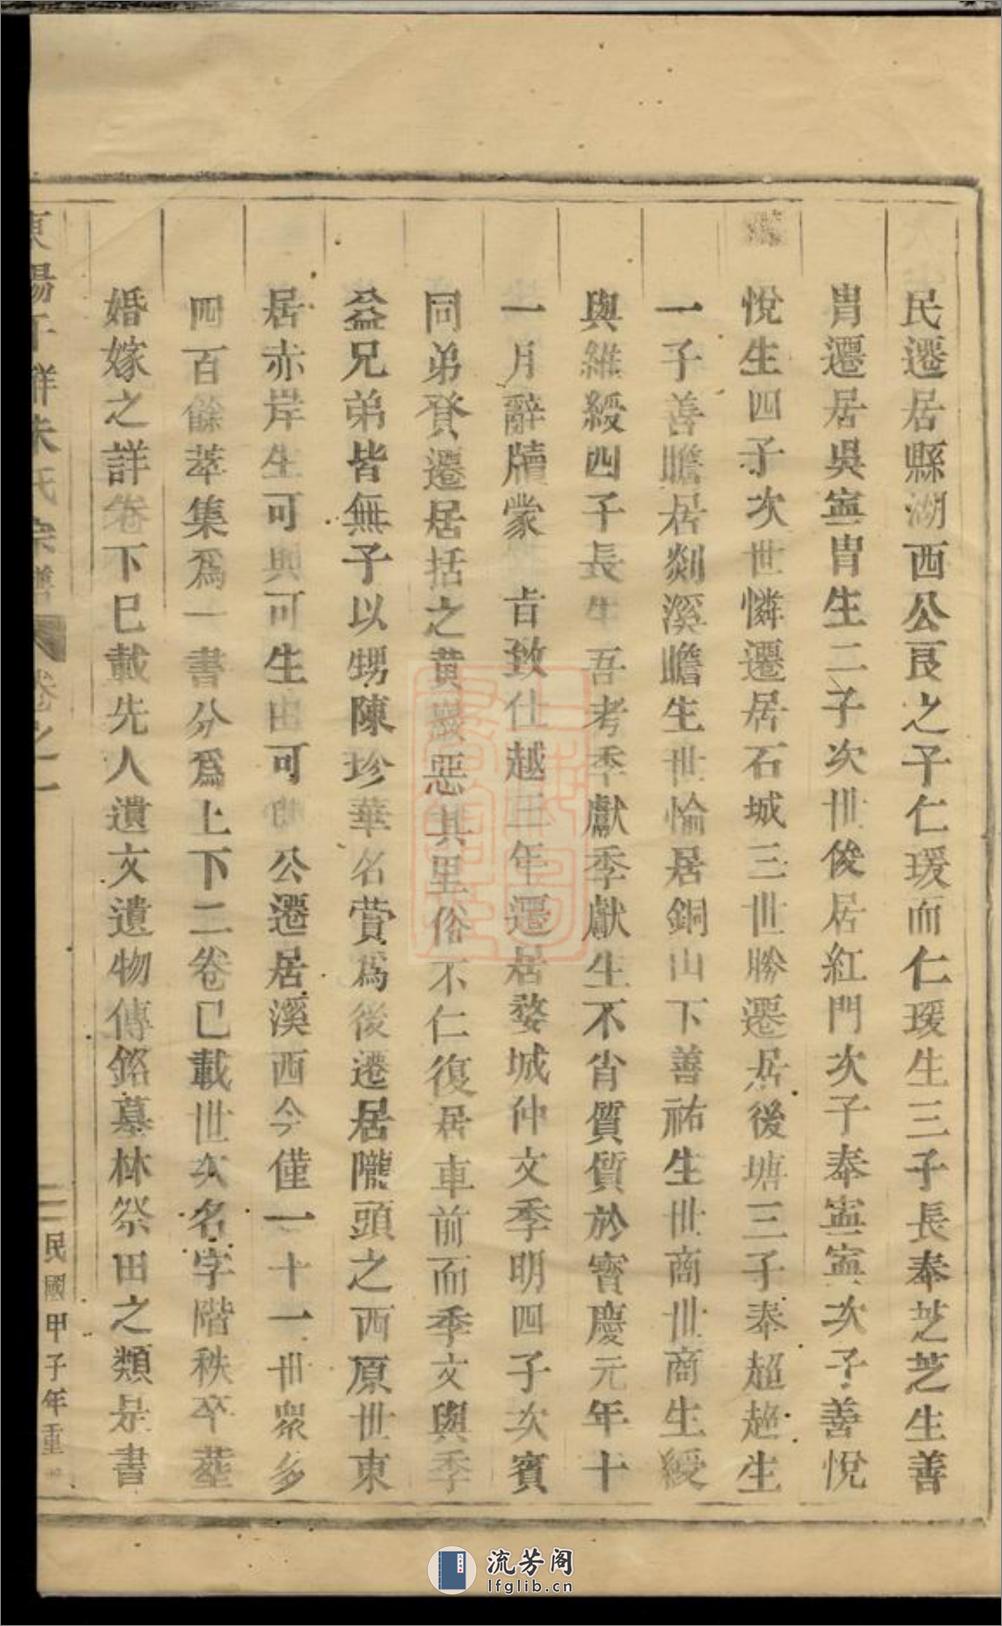 民遷居縣湖西公良之子仁瑗而仁瑗生三子長奉芝芝生善
冑遷居吳寧冑生二子次世俊居紅門次子奉寧寧次子善悅
悅生四子次世憐遷居石城三世勝遷居後塘三子奉超超生
一子善瞻居剡溪瞻生世愉居銅山下善祐生世商世商生綬
與維綬四子長生吾考季獻季獻生不肖質質於寶慶元年十
一月辭牘蒙 㫖致仕越三年遷居婺城仲文季明四子次賓
同弟賁遷居括之黄巖惡其里俗不仁復居車前而季文與季
益兄弟皆無子以甥陳珍華名蕡爲後遷居隴頭之西原世東
居赤岸生可與可生由可 公遷居溪西今僅一十一世衆多
四百餘萃集爲一書分爲上下二卷已載世次名字階秩卒塟
婚嫁之詳卷下已載先人遺文遺物傳銘墓林祭田之類是書
東陽 祥朱氏宗譜 卷之一 二 民國甲子年重
流芳阁
lfglib.cn